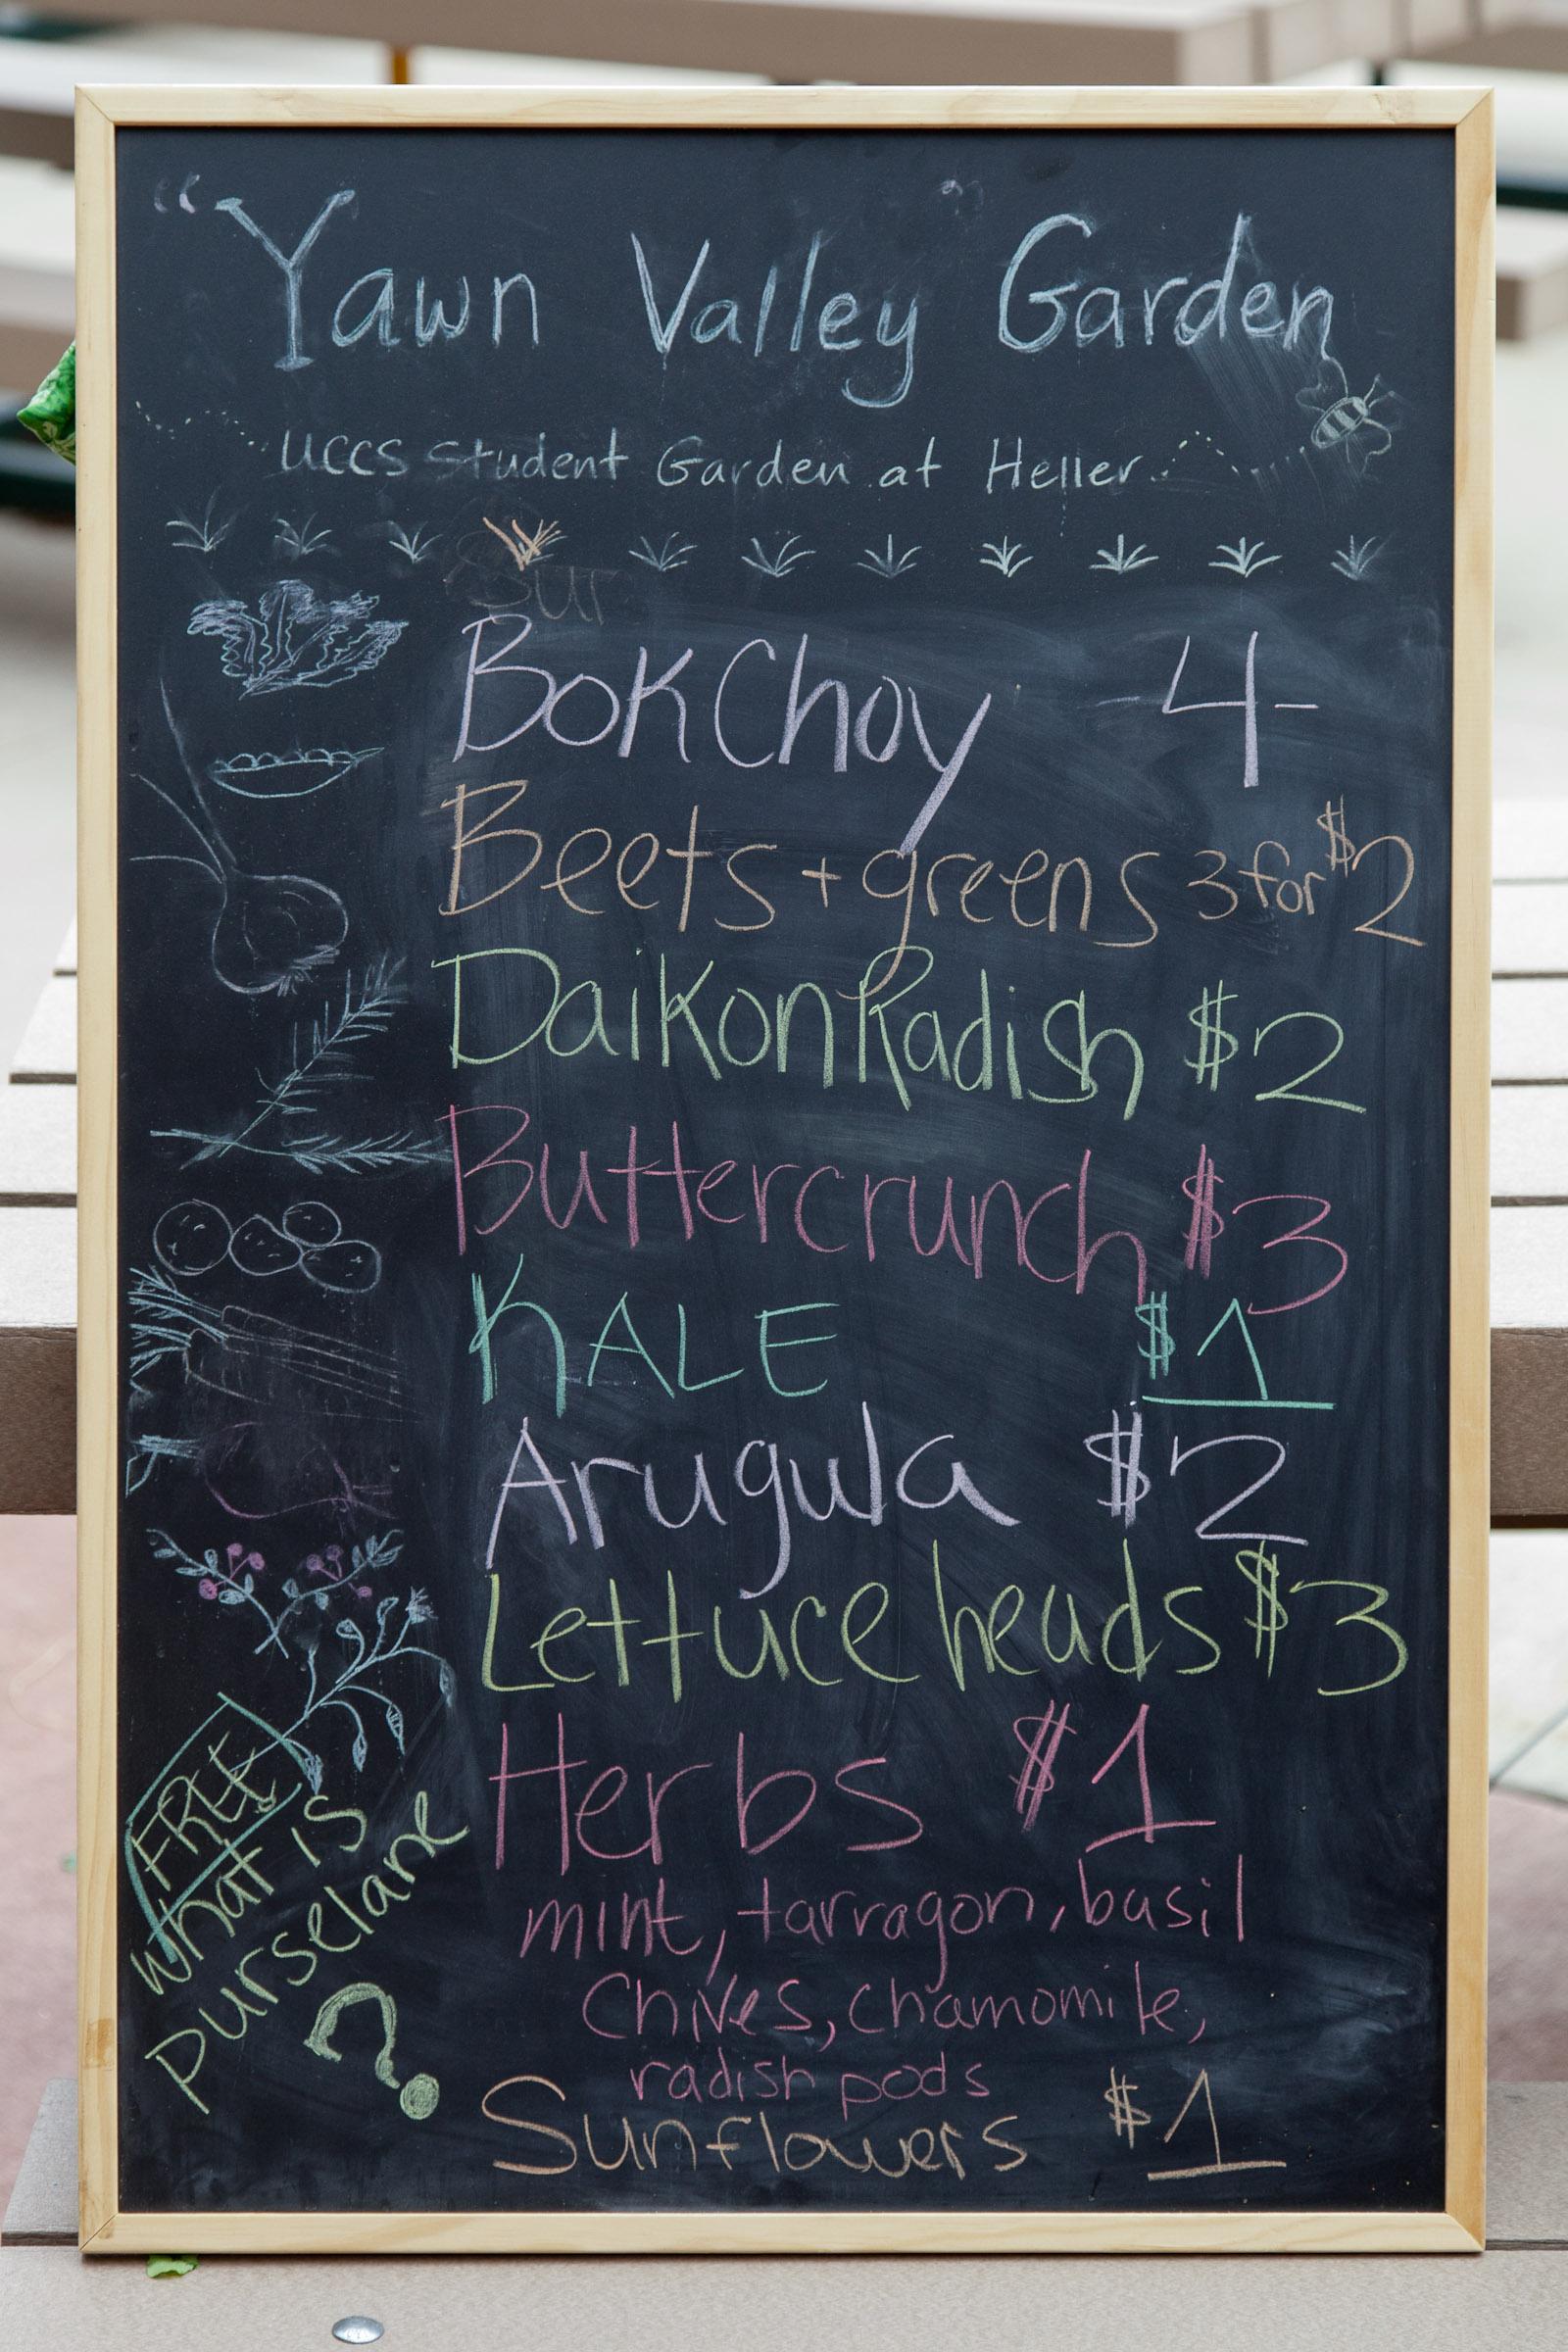 "Yawn Valley" Garden
UCCS Student Garden at Heller
Sur
Bok Choy -4-
Beets + greens 3 for $2
Daikon Radish $2
Buttercrunch $3
KALE $1
Arugula $2
Lettuce heads $3
Herbs $1
mint, tarragon, basil
Chives, chamomile,
radish pods
Sunflowers $1
FREE!
what is
purselane
?